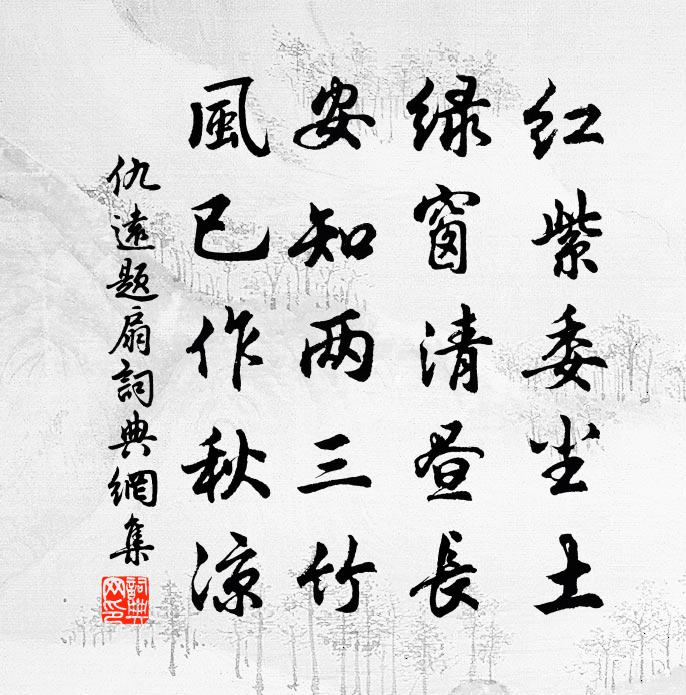 红紫委尘土
绿窗清昼長
安知两三竹
風已作秋凉
仇遠題扇詞典網集
詞典網印